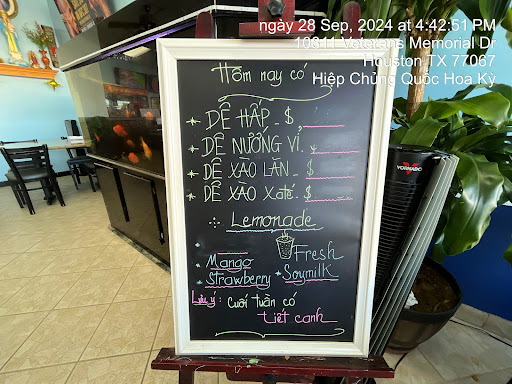 ngày 28 Sep, 2024 at 4:42:51 PM
10311 Veterans Memorial Dr
Houston TX 77067
Hiệp Chủng Quốc Hoa Kỳ
Hôm nay có
* DÊ HẤP - $
* DÊ NƯỚNG VỈ.
* DÊ XÀO LĂN - $
* DÊ XÀO Xaté - $
Lemonade
Mango Fresh
Strawberry * Soymilk
Lưu ý: Cuối tuần có
tiết canh
VORNADO